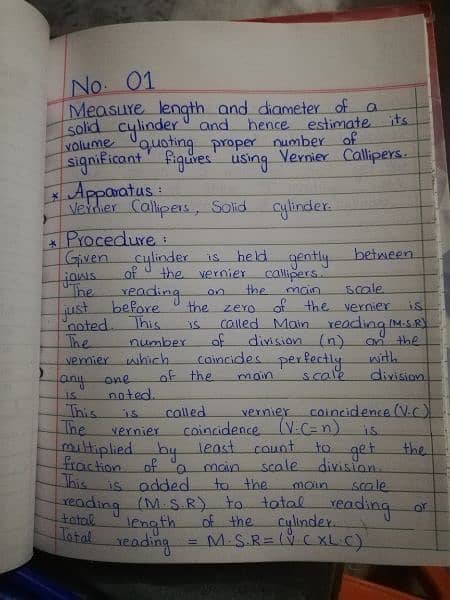 No. 01
Measure length and diameter of a
solid cylinder and hence estimate its
volume quoting proper number of
significant figures using Vernier Callipers.
* Apparatus :
Vernier Callipers, Solid cylinder.
* Procedure :
Given cylinder is held gently between
jaws of the vernier callipers.
The reading on the main scale
just before the zero of the vernier is
noted. This is called Main reading (M.S.R)
The number of division (n) on the
vernier which coincides perfectly with
any one of the main scale division
is noted.
This is called vernier coincidence (V.C)
The vernier coincidence (V.C=n) is
multiplied by least count to get the
fraction of a main scale division.
This is added to the main scale
reading (M.S.R) to total reading or
total length of the cylinder.
Total reading = M.S.R=(V.C x L.C)